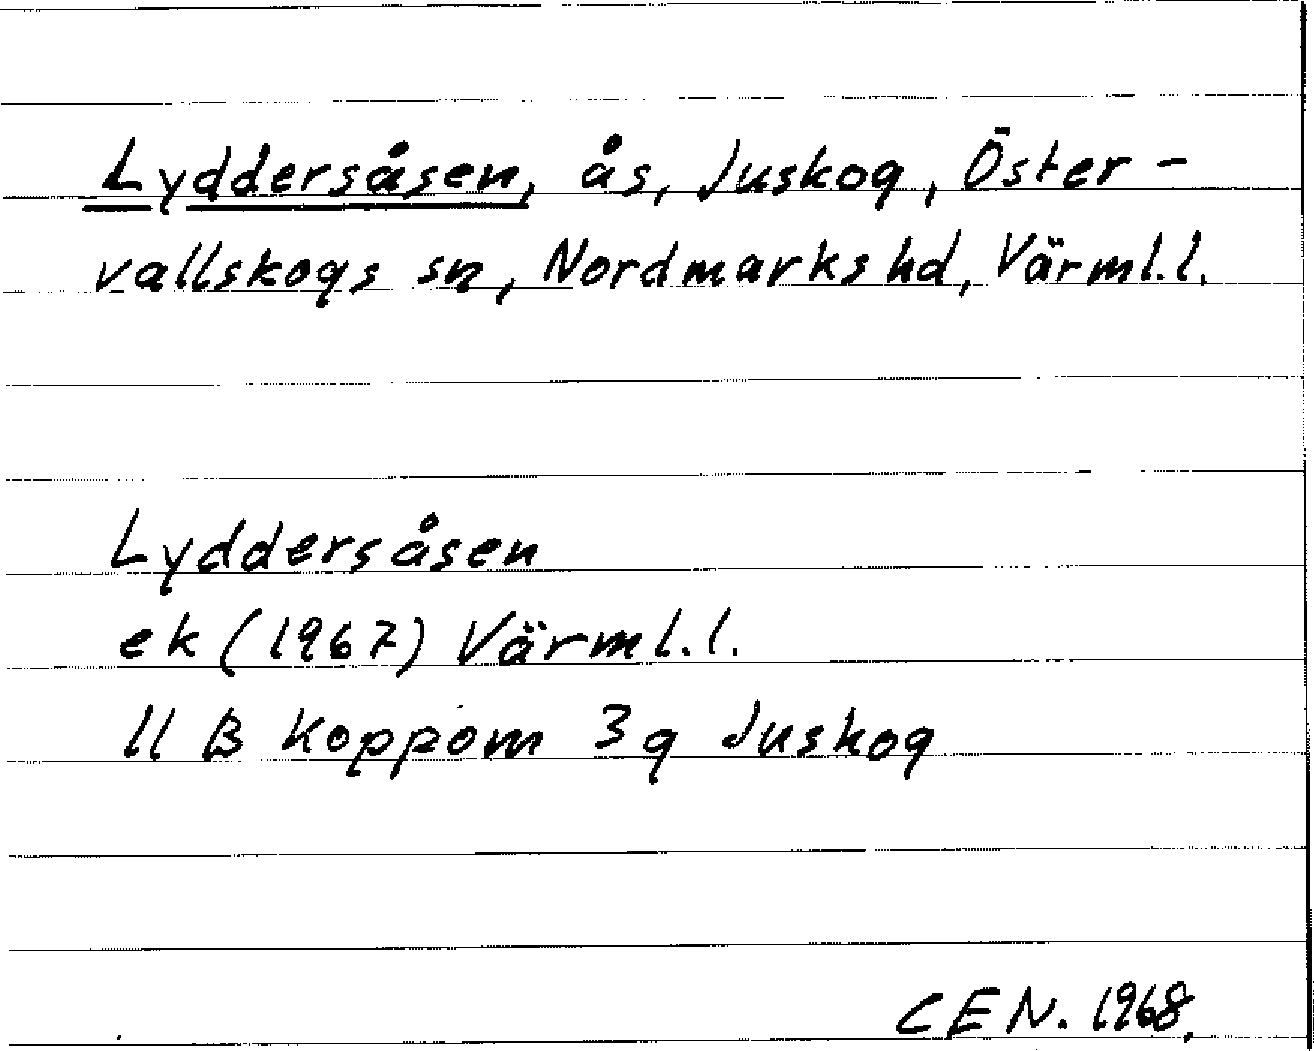 Lyddersåsen, ås, Juskog, Öster-
vallskogs sn, Nordmarks hd, Värml.l.
Lyddersåsen
ek (1967) Värml.l.
11 B Koppom 3g Juskog
CEN. 1968.